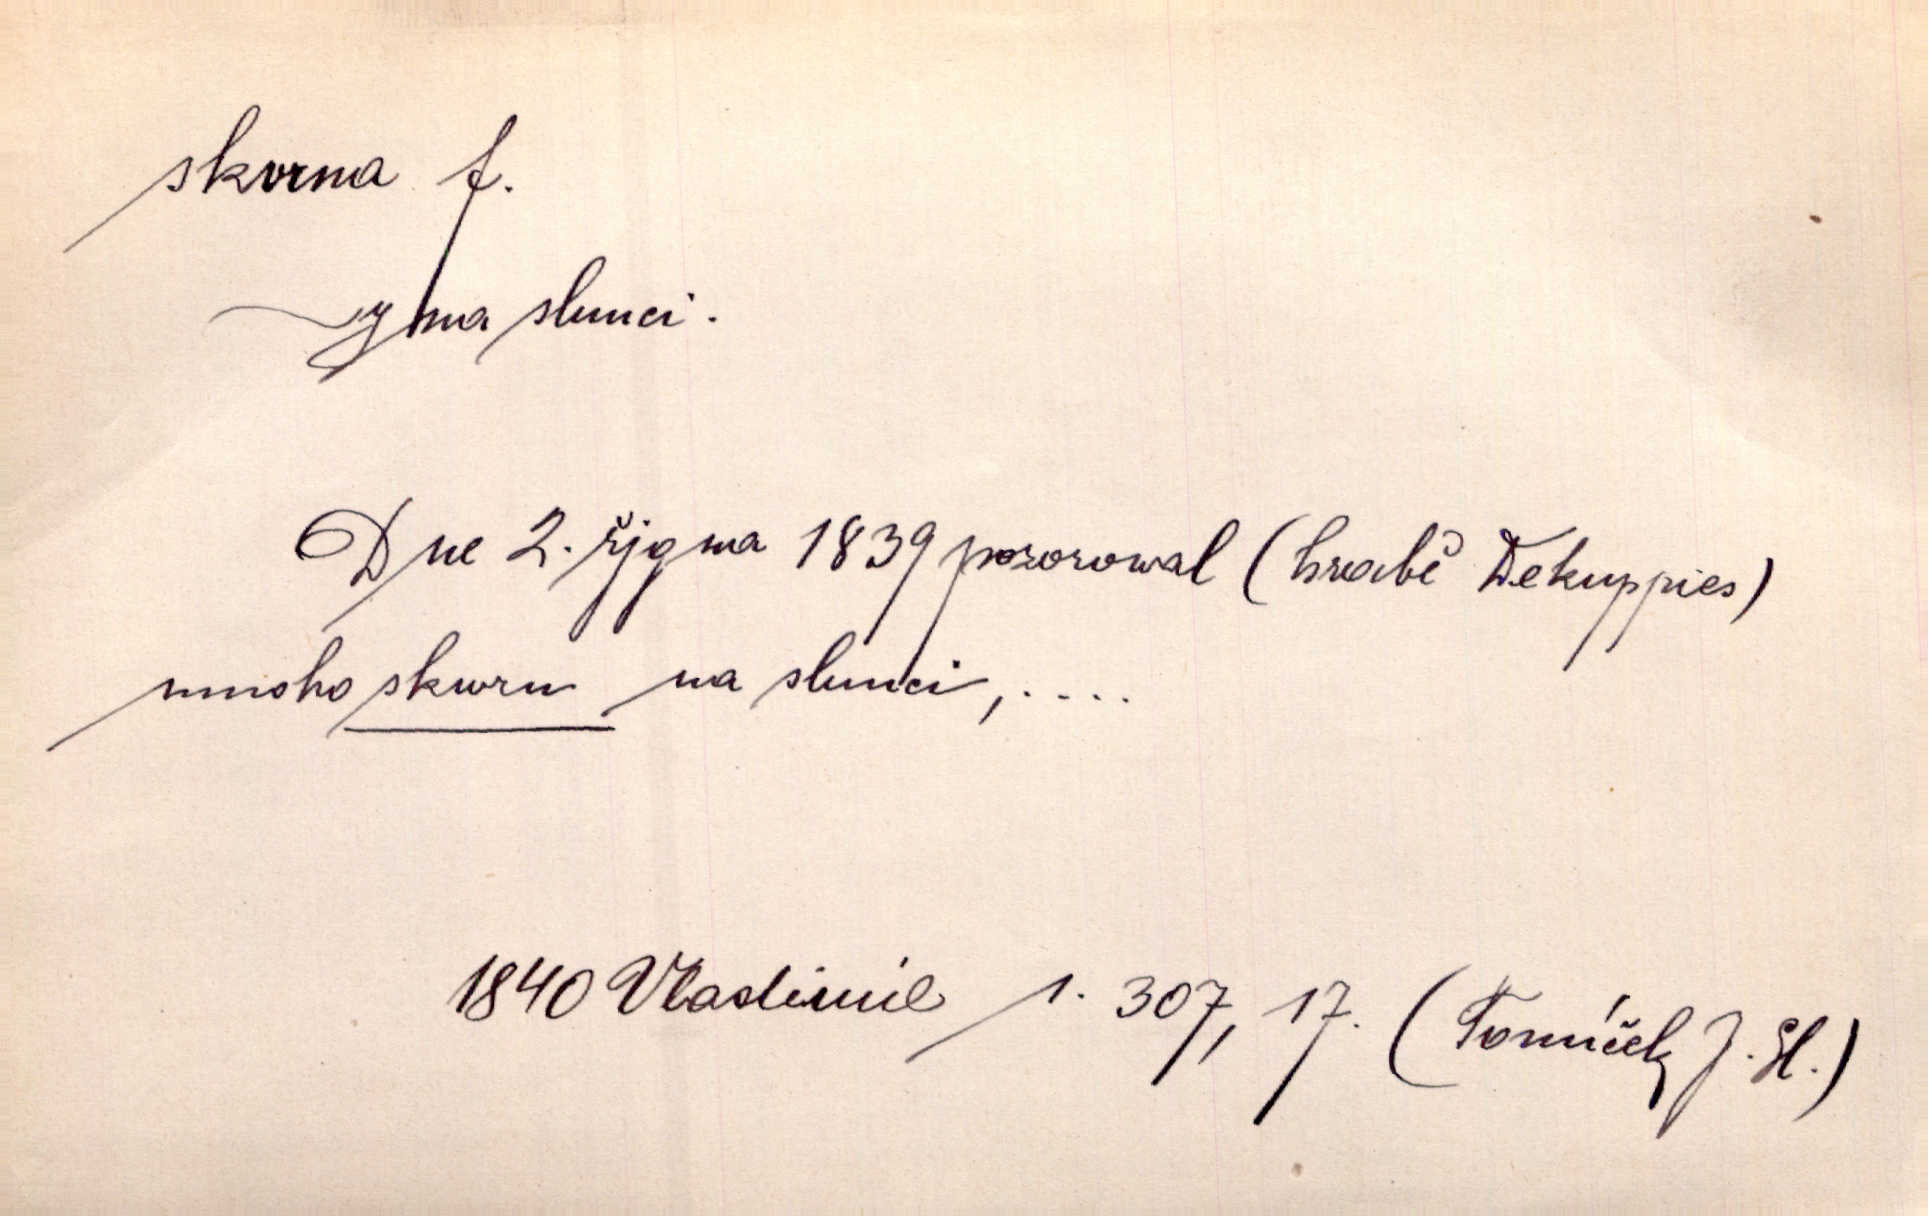 skvrna f.
~y na slunci.
Dne 2. řjgna 1839 pozorowal (hrabě Dekuppies)
mnoho skwrn na slunci, ....
1840 Vlastimil 1. 307, 17. (Tomíček J. Sl.)